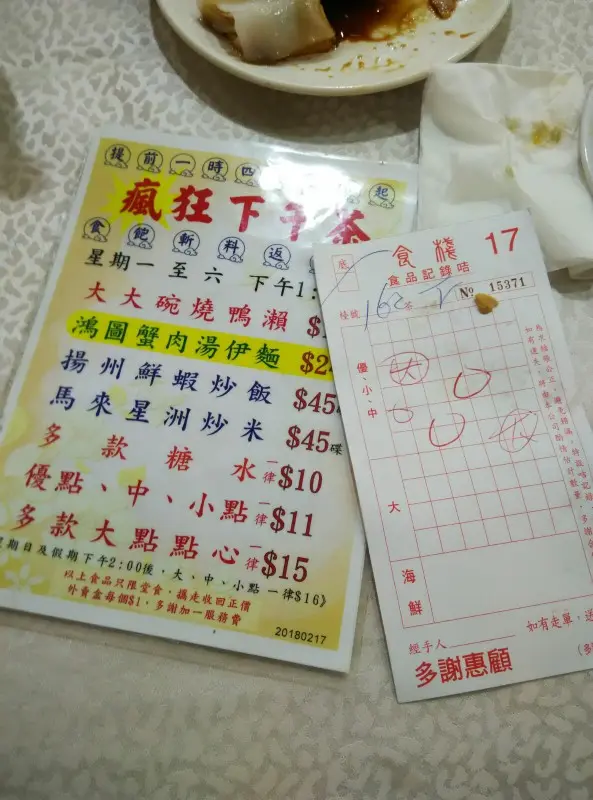 提前一時四 起
瘋狂下午茶
食飽斬料返
星期一至六 下午1:
大大碗燒鴨瀨 $
鴻圖蟹肉湯伊麵 $2
揚州鮮蝦炒飯 $45
馬來星洲炒米 $45碟
多款糖水一律$10
優點、中、小點一律$11
多款大點點心一律$15
星期日及假期下午2:00後，大、中、小點一律$16》
以上食品只限堂食，攜走收回正價
外賣盒每個$1，多謝加一服務費
20180217
底
食棧 17
食品記錄咭
檯號 162 茶 No 15371
優、小、中
大
海鮮
經手人
如有走單，送
多謝惠顧